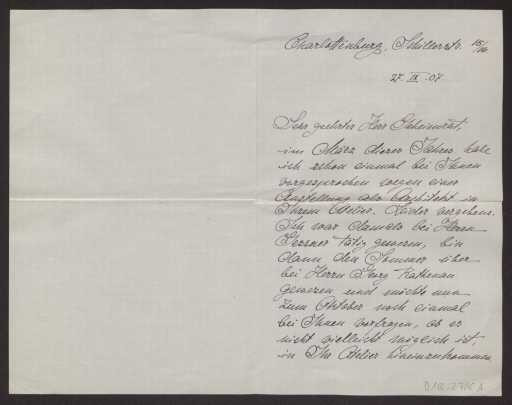 Charlottenburg, Schillerstr. 15/16
27. IX. 07
Sehr geehrter Herr Geheimrat,
im März dieses Jahres habe
ich schon einmal bei Ihnen
vorgesprochen wegen einer
Anstellung als Architekt in
Ihrem Atelier. Leider vergebens.
Ich war damals bei Herrn
tätig gewesen, bin
dann den Sommer über
bei Herrn Georg Rathenau
gewesen und möchte nun
zum Oktober noch einmal
bei Ihnen vorfragen, ob es
nicht vielleicht möglich ist,
in Ihr Atelier hineinzukommen